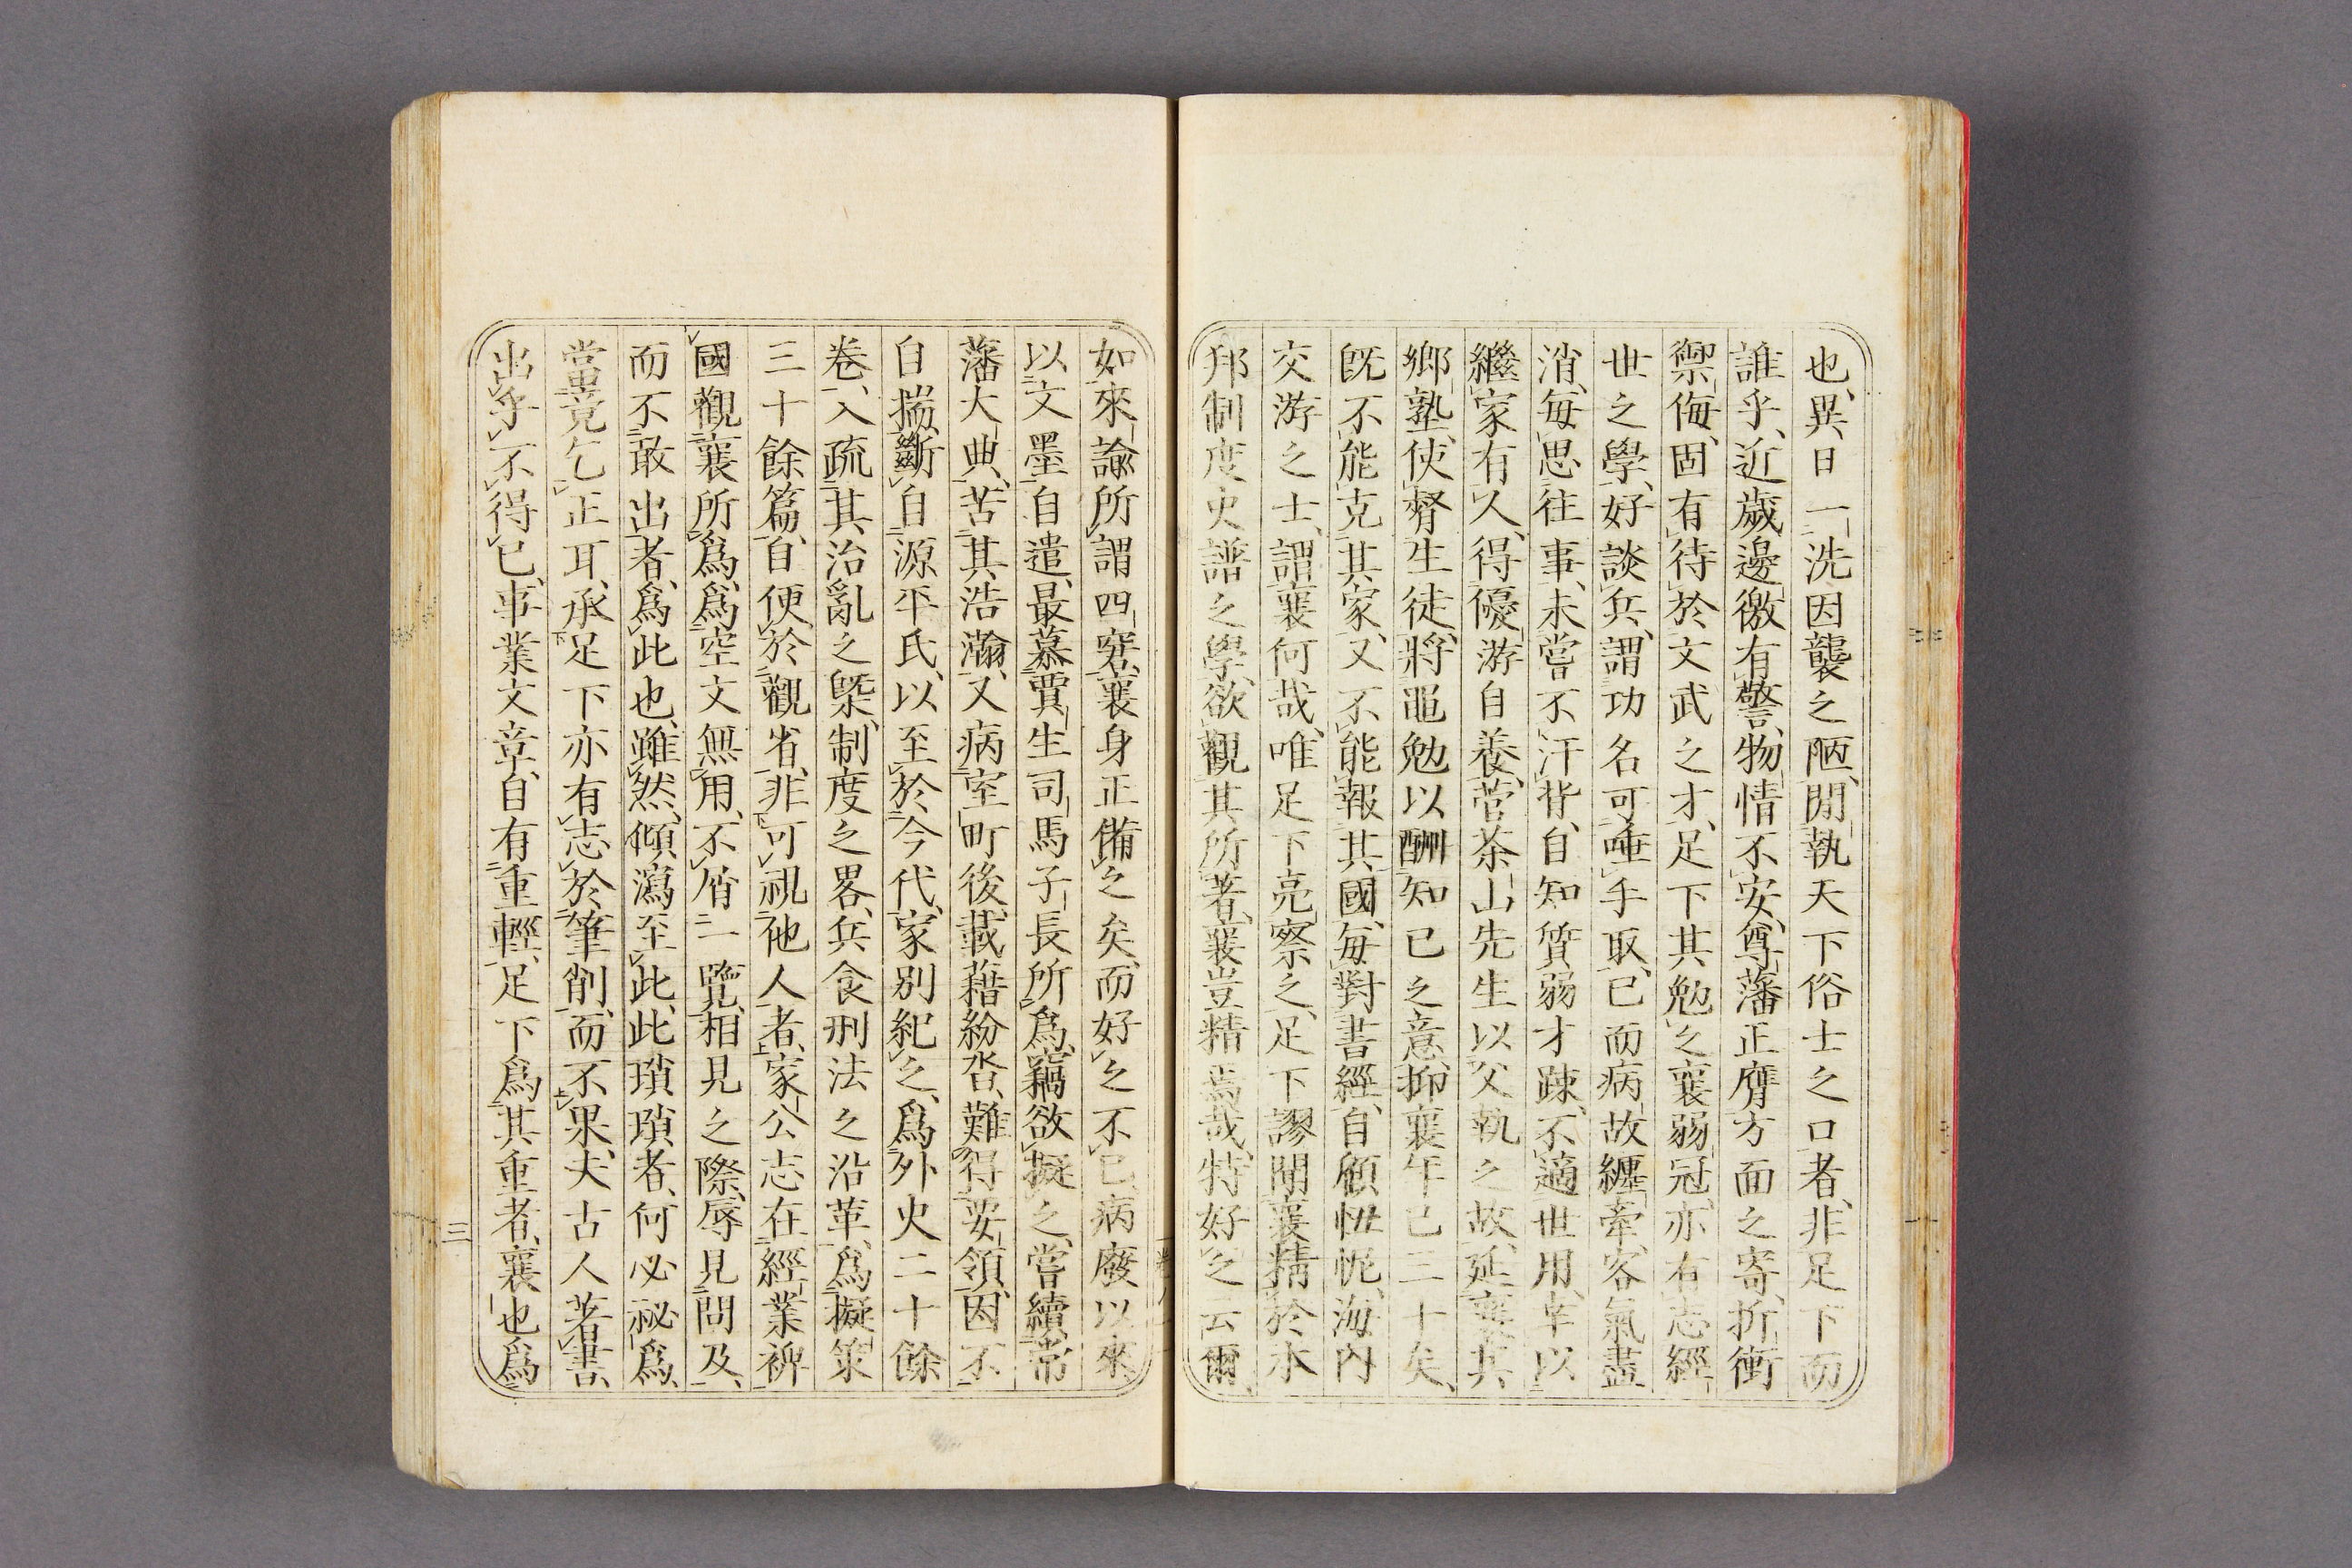 也、異日一洗因襲之陋、閒執天下俗士之口者、非足下而
誰乎、近歲邊徼有警、物情不安、尊藩正膺方面之寄、折衝
禦侮、固有待於文武之才、足下其勉之、襄弱冠、亦有志經
世之學、好談兵、謂功名可唾手取、已而病故纏牽、客氣盡
消、每思往事、未嘗不汗背、自知質弱才踈、不適世用、幸以
繼家有人、得優游自養、菅茶山先生以父執之故、延襄其
鄉塾、使督生徒、將黽勉以酬知己之意、抑襄年已三十矣、
既不能克其家、又不能報其國、每對書經、自顧忸怩、海內
交游之士、謂襄何哉、唯足下亮察之、足下謬聞襄精於本
邦制度史譜之學、欲觀其所著、襄豈精焉哉、特好之云爾、
如來諭所謂四窘、襄身正備之矣、而好之不已、病廢以來、
以文墨自遣、最慕賈生司馬子長所爲、竊欲擬之、嘗續常
藩大典、苦其浩瀚、又病室町後、載藉紛沓、難得要領、因不
自揣斷、自源平氏、以至於今代、家別紀之、爲外史二十餘
卷、入疏其治亂之槩、制度之畧、兵食刑法之沿革、爲擬策
三十餘篇、自便於觀省、非可視他人者、家公志在經業裨
國、觀襄所爲、爲空文無用、不屑一覽、相見之際、辱見問及、
而不敢出者、爲此也、雖然、傾瀉至此、此瑣瑣者、何必祕爲、
當畢竟乞正耳、承足下亦有志於筆削、而不果、夫古人著書、
出乎不得已、事業文章、自有重輕、足下爲其重者、襄也爲
三